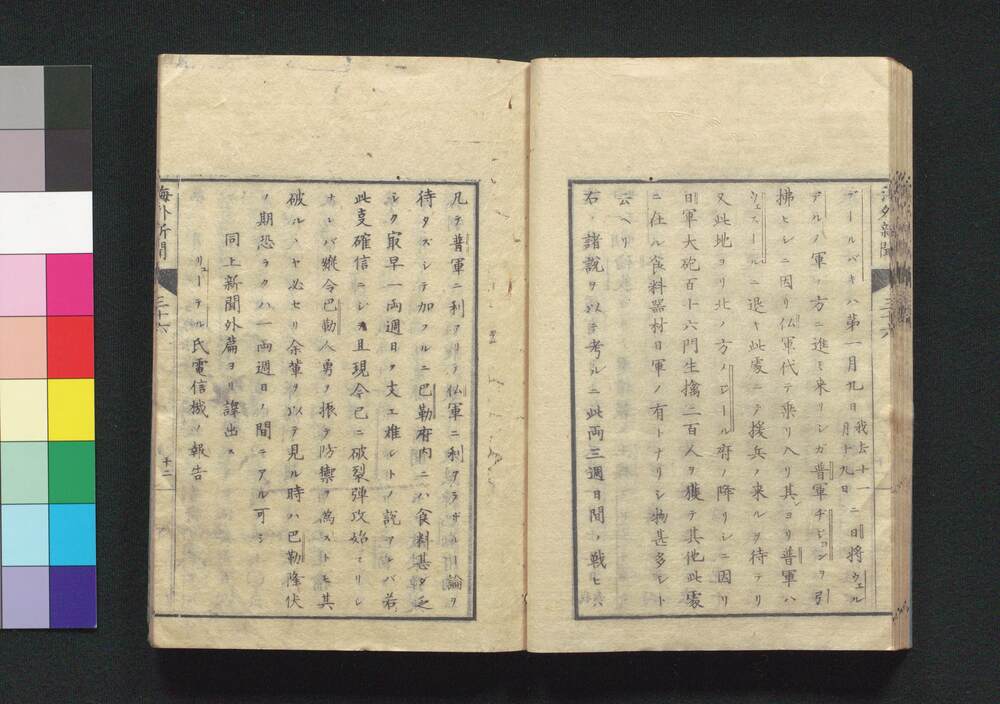 海外新聞 三十六
デールバキハ第一月九日我去十一月十九日ニ日将ウェル
デルノ軍ノ方ニ進ミ来リシガ普軍ヂジョンヲ引
拂ヒシニ因リ仏軍代テ乗リ入リ其ヨリ普軍ハ
ウェスールニ退キ此處ニテ援兵ノ来ルヲ待テリ
又此地ヨリ北ノ方ノレール府ノ降リシニ因リ
日軍大砲百十六門生擒二百人ヲ獲テ其他此處
ニ在ル食料器材日軍ノ有トナリシ物甚多シト
云ヘリ
右ノ諸説ヲ以テ考ルニ此両三週日間ノ戦ヒ
凡テ普軍ニ利アリテ仏軍ニ利アラザルー論ヲ
待タズシテ加フルニ巴勒府内ニハ食料甚タ乏
シク最早一両週日ヲ支エ難シトノ説アレバ若
此支確信ニシテ且現今已ニ破裂弾攻始マリシ
ナレバ縦令巴勒人勇ヲ振テ防禦ヲ為ストモ其
破ルヽヤ必セリ余輩ヲ以テ見ル時ハ巴勒降伏
ノ期恐ラクハ一両週日ノ間ニアル可シ
同上新聞外篇ヨリ譯出ス
リューテル氏電信機ノ報告
海外新聞 三十六 十二